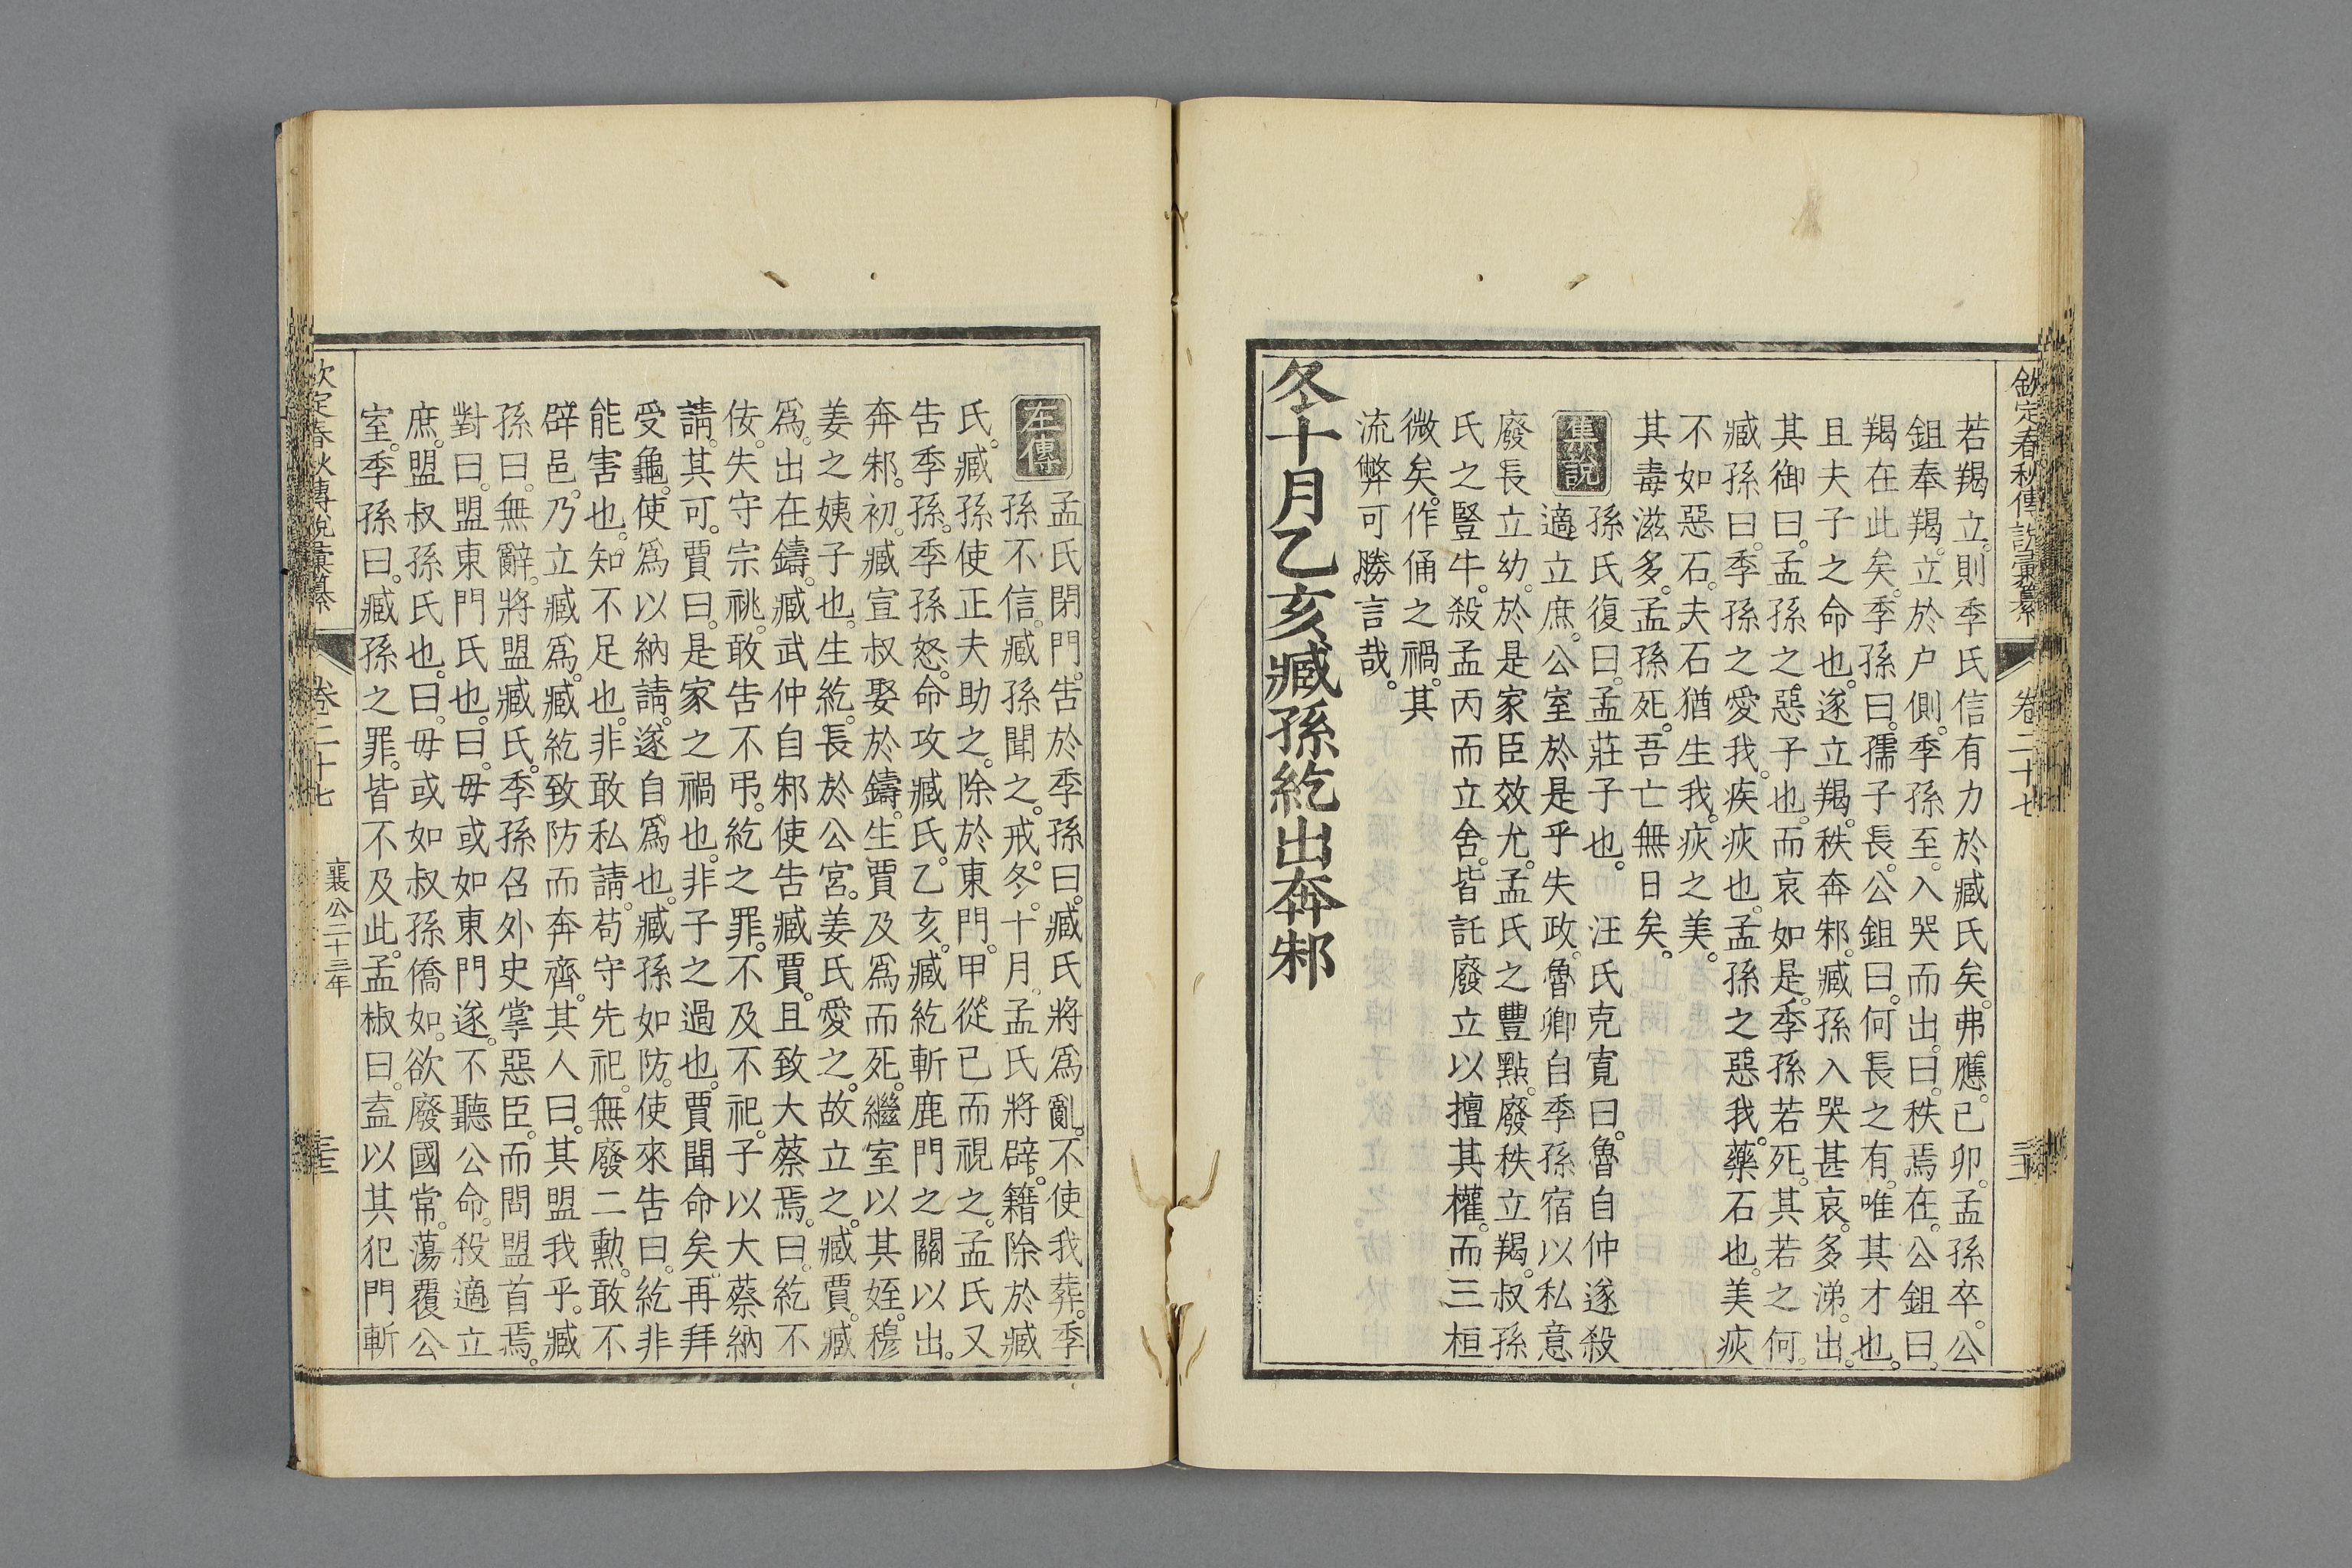 欽定春秋傳說彙纂 卷二十七
若羯立。則季氏信有力於臧氏矣。弗應。己卯。孟孫卒。公
鉏奉羯。立於户側。季孫至。入哭而出。曰。秩焉在。公鉏曰。
羯在此矣。季孫曰。孺子長。公鉏曰。何長之有。唯其才也。
且夫子之命也。遂立羯。秩奔邾。臧孫入哭甚哀。多涕。出。
其御曰。孟孫之惡子也。而哀如是。季孫若死。其若之何。
臧孫曰。季孫之愛我。疾疢也。孟孫之惡我。藥石也。美疢
不如惡石。夫石猶生我。疢之美。
其毒滋多。孟孫死。吾亡無日矣。
集說
孫氏復曰。孟莊子也。 汪氏克寬曰。魯自仲遂殺
適立庶。公室於是乎失政。魯卿自季孫宿以私意
廢長立幼。於是家臣效尤。孟氏之豐點。廢秩立羯。叔孫
氏之豎牛。殺孟丙而立舍。皆託廢立以擅其權。而三桓
微矣。作俑之禍。其
流弊可勝言哉。
冬十月乙亥臧孫紇出奔邾
左傳
孟氏閉門。告於季孫曰。臧氏將爲亂。不使我葬。季
孫不信。臧孫聞之。戒。冬。十月。孟氏將辟。籍除於臧
氏。臧孫使正夫助之。除於東門。甲從己而視之。孟氏又
告季孫。季孫怒。命攻臧氏。乙亥。臧紇斬鹿門之關以出。
奔邾。初。臧宣叔娶於鑄。生賈及爲而死。繼室以其姪。穆
姜之姨子也。生紇。長於公宮。姜氏愛之。故立之。臧賈。臧
爲。出在鑄。臧武仲自邾使告臧賈。且致大蔡焉。曰。紇不
佞。失守宗祧。敢告不弔。紇之罪。不及不祀。子以大蔡納
請。其可。賈曰。是家之禍也。非子之過也。賈聞命矣。再拜
受龜。使爲以納請。遂自爲也。臧孫如防。使來告曰。紇非
能害也。知不足也。非敢私請。苟守先祀。無廢二勳。敢不
辟邑。乃立臧爲。臧紇致防而奔齊。其人曰。其盟我乎。臧
孫曰。無辭。將盟臧氏。季孫召外史掌惡臣。而問盟首焉。
對曰。盟東門氏也。曰。毋或如東門遂。不聽公命。殺適立
庶。盟叔孫氏也。曰。毋或如叔孫僑如。欲廢國常。蕩覆公
室。季孫曰。臧孫之罪。皆不及此。孟椒曰。盍以其犯門斬
欽定春秋傳說彙纂 卷二十七 襄公二十三年